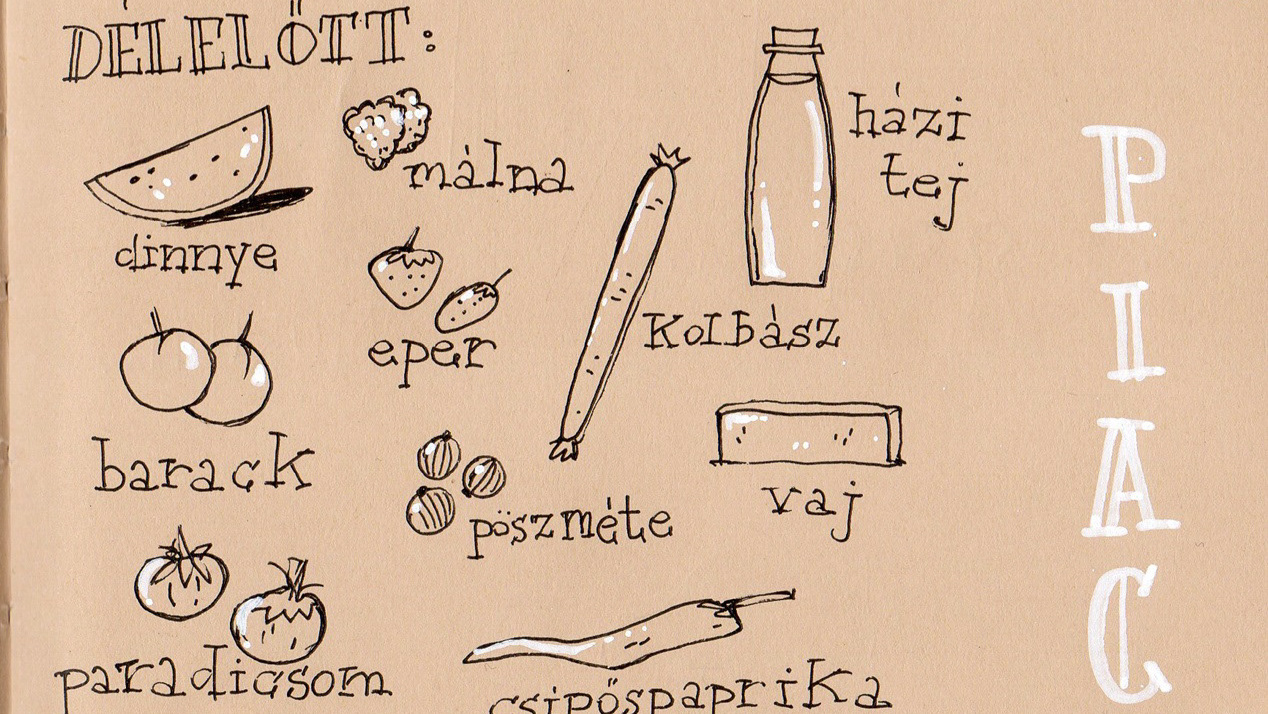 DÉLELŐTT:
málna
dinnye
házi
tej
eper
Kolbász
barack
pöszméte
vaj
paradicsom
csipőspaprika
PIAC